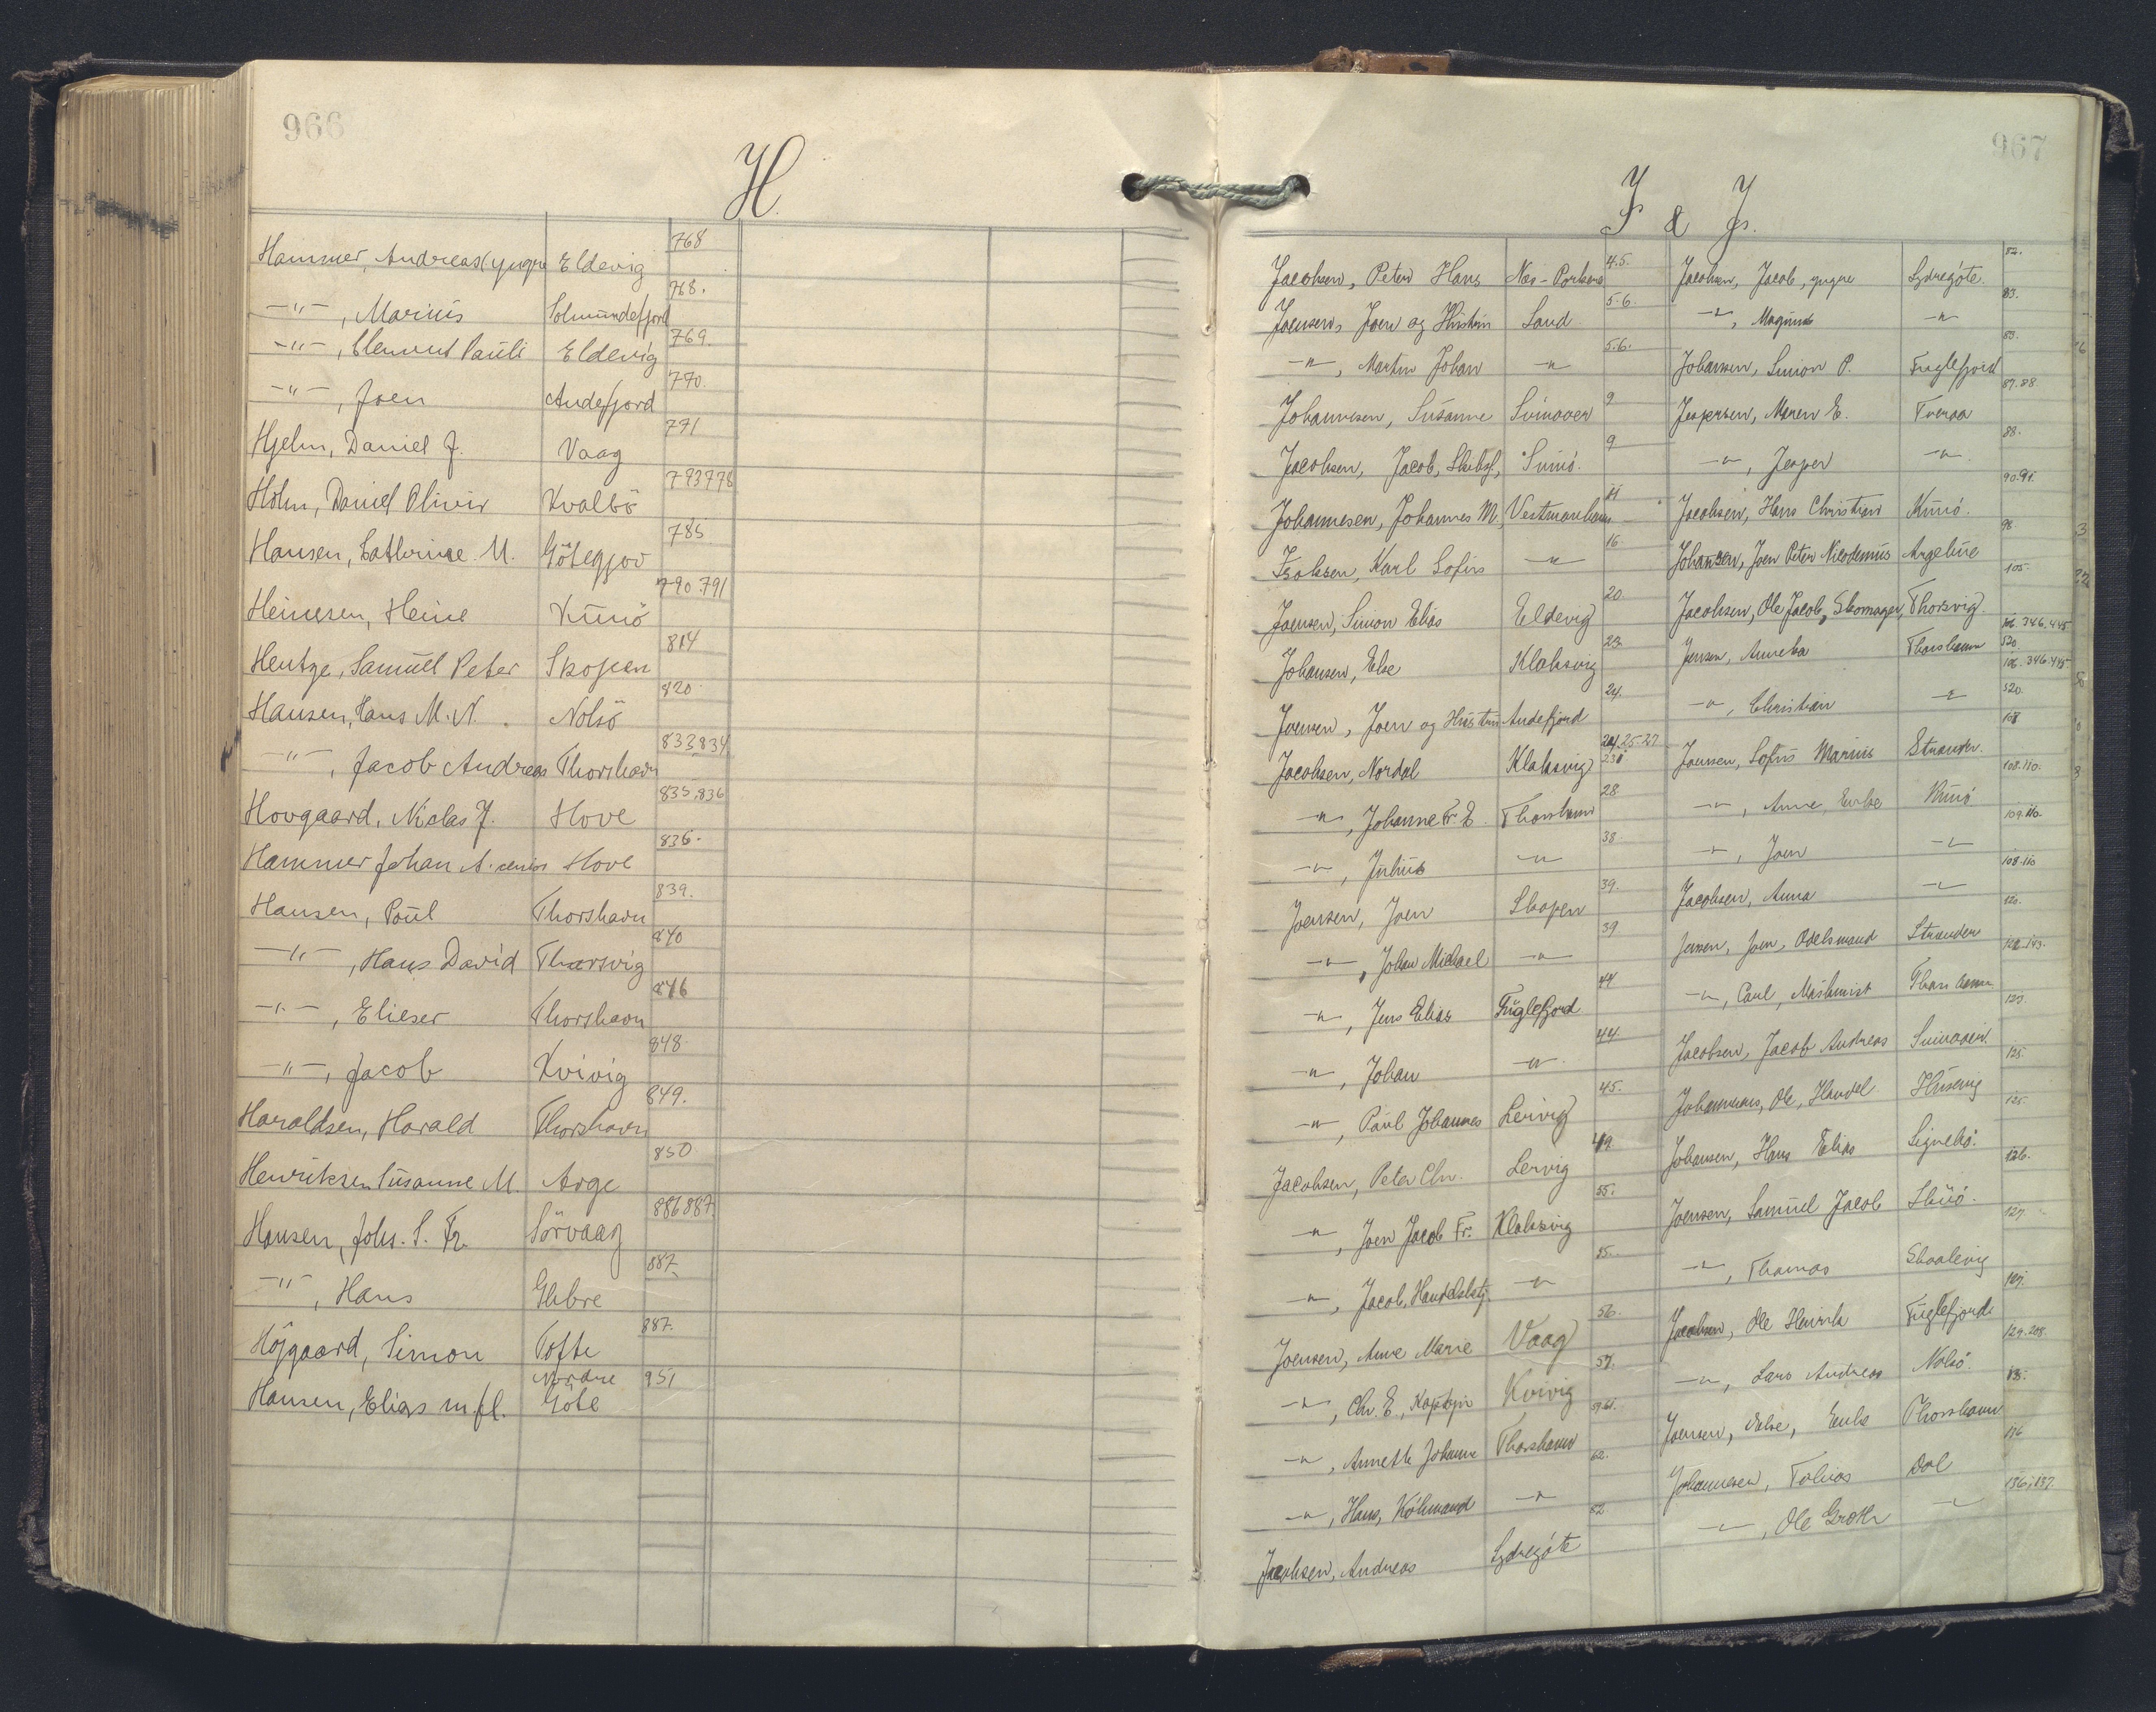 966
H.
Hammer, Andreas (yngre Eldevig 768
—"—, Marius Solmundefjord 768.
—"—, Clement Pauli Eldevig 769.
—"—, Joen Andefjord 770.
Hjelm, Daniel J. Vaag 771
Holm, Daniel Olivir Kvalbö
Hansen, Cathrine M. Götegjov 785
Heinesen, Heine Kunö 790.791
Hentze, Samuel Peter Skopen 814
Hansen, Hans M. N. Nolsö 820
—"—, Jacob Andreas Thorshavn 833834
Hovgaard, Niclas J. Hove 835.836
Hammer Johan A. senior Hove 836.
Hansen, Poul Thorshavn 839.
—"—, Hans David Thorsvig 840
—"—, Elieser Thorshavn 846
—"—, Jacob Kvivig 848
Haraldsen, Harald Thorshavn 849.
Henriksen Susanne M. Arge 850
Hansen, Johs. S. Fr. Sörvaag 886887
—"—, Hans Glibre 887.
Höjgaard, Simon Tofte 887.
Hansen, Elias m fl. Nordre Göte 951
967
I & J.
Jacobsen, Peter Hans Nes-Porkere 4.5.
Joensen, Joen og Kristin Sand 5.6.
—"—, Martin Johan —"— 5.6.
Johannesen, Susanne Svinover 9
Jacobsen, Jacob, Skibsf, Svinö. 9
Johannesen, Johannes M. Vestmanhavn 11
Isaksen, Karl Sofus —"— 16.
Joensen, Simon Elias Eldevig 20.
Johansen, Else Klaksvig 23
Joensen, Joen og Kristin Andefjord 24.
Jacobsen, Nordal Klaksvig 24.25.27
—"—, Johanne Fr. E. Thorshavn 28
—"—, Julius —"— 38.
Joensen, Joen Skopen 39.
—"—, Johan Michael —"— 39
—"—, Jens Elias Fuglefjord 44
—"—, Johan —"— 44
—"—, Paul Johannes Lervig 45.
Jacobsen, Peter Chr. Lervig 49.
—"—, Joen Jacob Fr. Klaksvig 55.
—"—, Jacob, Handelsbetj. —"— 55.
Joensen, Anne Marie Vaag 56.
—"—, Chr. E., Kaptejn Kvivig 57.
—"—, Annette Johanne Thorshavn 59.61.
—"—, Hans, Köbmand —"— 62.
Jacobsen, Andreas Sydregöte 82
Jacobsen, Jacob, yngre Sydregöte 82.
—"—, Magnus —"— 83.
Johansen, Simon P. Fuglefjord 83.
Jespersen, Maren E. Tveraa 87.88
—"—, Jesper —"— 88.
Jacobsen, Hans Christian Kunö. 90.91.
Johansen, Joen Peter Nicodemus Argeline 98
Jacobsen, Ole Jacob, Skomager, Thorsvig 105.
Jensen, Anneka Thorshavn 106.346.445 520
—"—, Christian —"— 106.346.445 520.
Joensen, Sofus Marius Strander. 108
—"—, Anne, Enke Kunö 108.110.
—"—, Joen —"— 109.110.
Jacobsen, Anna —"— 108.110
Jensen, Joen, Odelsmand Strander 120.
—"—, Paul, Maskinist Thorshavn
Jacobsen, Jacob Andreas Svinoveir. 123.
Johannesen, Ole, Handel Husevig 125.
Johansen, Hans Elias Signebö. 125.
Joensen, Samuel Jacob Skuö. 126.
—"—, Thomas Skaalevig 127.
Jacobsen, Ole Henrik Fuglefjord
—"—, Lars Andreas Nolsö. 129.208.
Joensen, Else, Enke Thorshavn
Johannesen, Tobias Dal 136
—"—, Ole Groth —"— 136.137